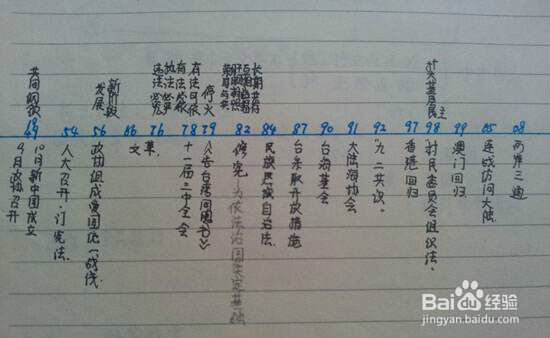 共同纲领
新阶段
发展
有法可依
有法必依
执法必严
违法必究
停火
长期共存
互相监督
肝胆相照
荣辱与共
扩大基层民主
49 54 56 66 76 78 79 82 84 87 90 91 92 97 98 99 05 08
10月新中国成立
9月政协召开
人大召开·订宪法.
政协组成爱国统一战线.
文
革.
十一届三中全会
《告台湾同胞书》
修宪 为依法治国奠定基础
民族区域自治法.
台采取开放措施
台海基会
大陆海协会
"九二共识.
香港回归
村民委员会组织法.
澳门回归
连战访问大陆.
两岸三通
Baidu经验
jingyan.baidu.com